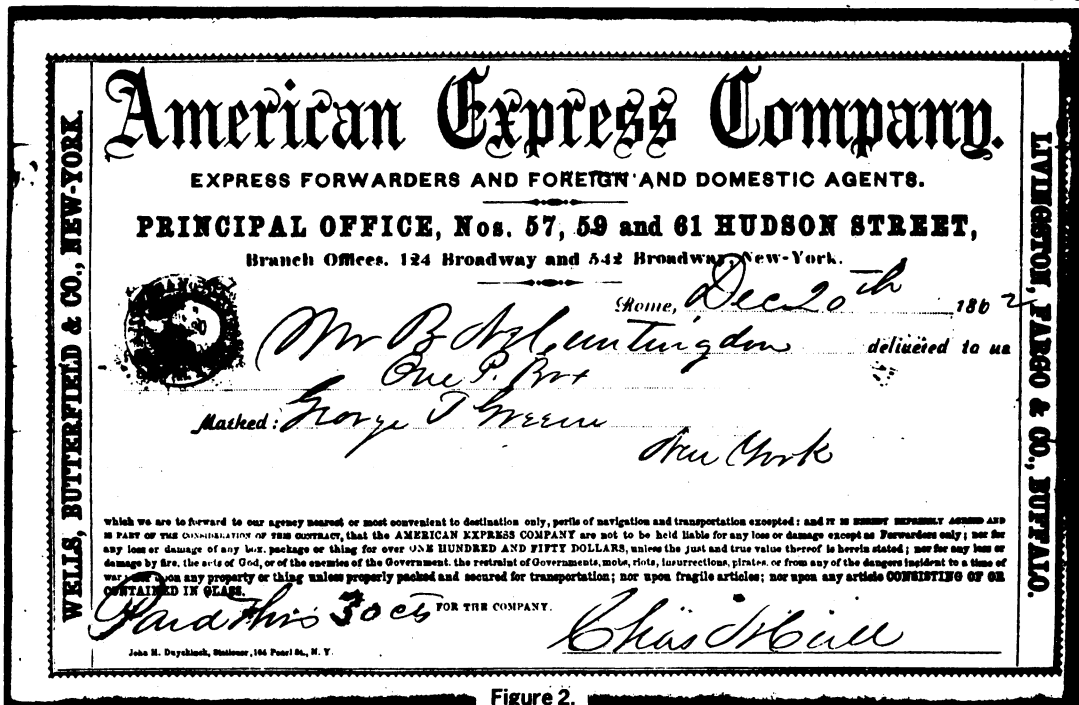 American Express Company.
EXPRESS FORWARDERS AND FOREIGN AND DOMESTIC AGENTS.
PRINCIPAL OFFICE, Nos. 57, 59 and 61 HUDSON STREET,
Branch Offices. 124 Broadway and 542 Broadway, New-York.
Rome, Dec 20th 1862
Mr B Huntingdon delivered to us
One P. Box
Marked: George T Greene
New York
which we are to forward to our agency nearest or most convenient to destination only, perils of navigation and transportation excepted; and IT IS HEREBY EXPRESSLY AGREED AND
IS PART OF THE CONSIDERATION OF THIS CONTRACT, that the AMERICAN EXPRESS COMPANY are not to be held liable for any loss or damage except as Forwarders only; nor for
any loss or damage of any box, package or thing for over ONE HUNDRED AND FIFTY DOLLARS, unless the just and true value thereof is herein stated; nor for any loss or
damage by fire, the acts of God, or of the enemies of the Government, the restraint of Governments, mobs, riots, insurrections, pirates, or from any of the dangers incident to a time of
war; nor upon any property or thing unless properly packed and secured for transportation; nor upon fragile articles; nor upon any article CONSISTING OF OR
CONTAINED IN GLASS.
Paid this 30cts FOR THE COMPANY.
Chas
John M. Duyckinck, Stationer, 164 Pearl St., N. Y.
WELLS, BUTTERFIELD & CO., NEW-YORK.
LIVINGSTON, FARGO & CO., BUFFALO.
Figure 2.